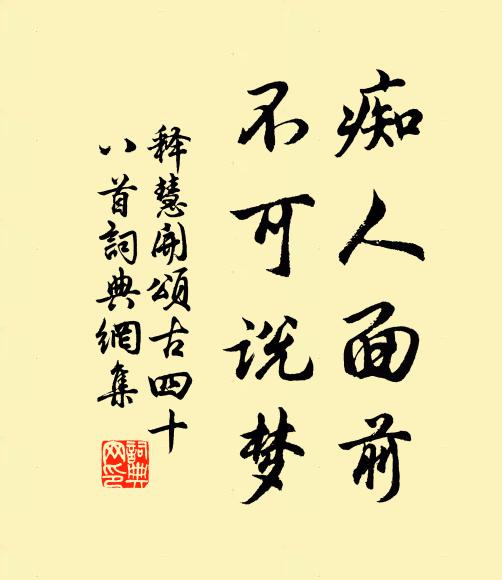 痴人面前
不可说梦
释慧开颂古四十
八首詞典網集
詞典
网印